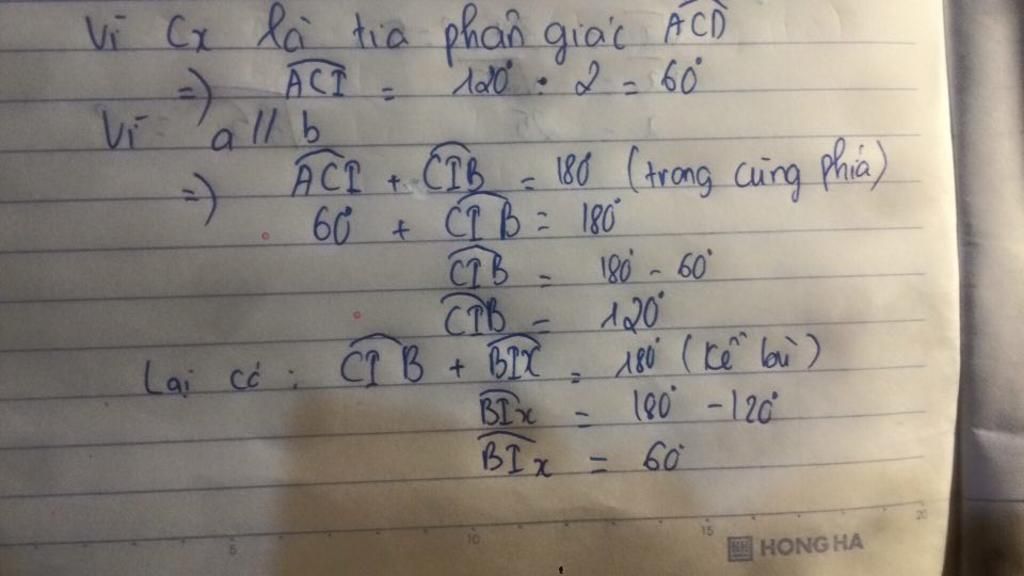 Vì Cx là tia phân giác ACD
=) ACI = 120° : 2 = 60°
Vì a // b
=) ACI + CIB = 180 (trong cùng phía)
60° + CIB = 180°
CIB = 180° - 60°
CIB = 120°
Lại có: CIB + BIx = 180° (kề bù)
BIx = 180° - 120°
BIx = 60°
5 10 15 20
HONG HA